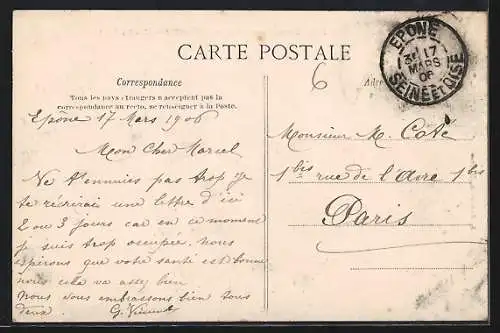 CARTE POSTALE
Correspondance
Tous les pays étrangers n'acceptent pas la
correspondance au recto, se renseigner à la Poste.
Adre
6
EPONE
3E 17
MARS
06
SEINE ET OISE
Epône 17 Mars 1906
Mon Cher Marcel
Ne t'ennuies pas trop je
te récrirai une lettre d'ici
2 ou 3 jours car en ce moment
je suis trop occupée. nous
espérons que votre santé est bonne
nous cela va assez bien
Nous vous embrassons bien tous
deux. G.
Monsieur M. Coté
1 bis rue de l'Avre 1 bis
Paris